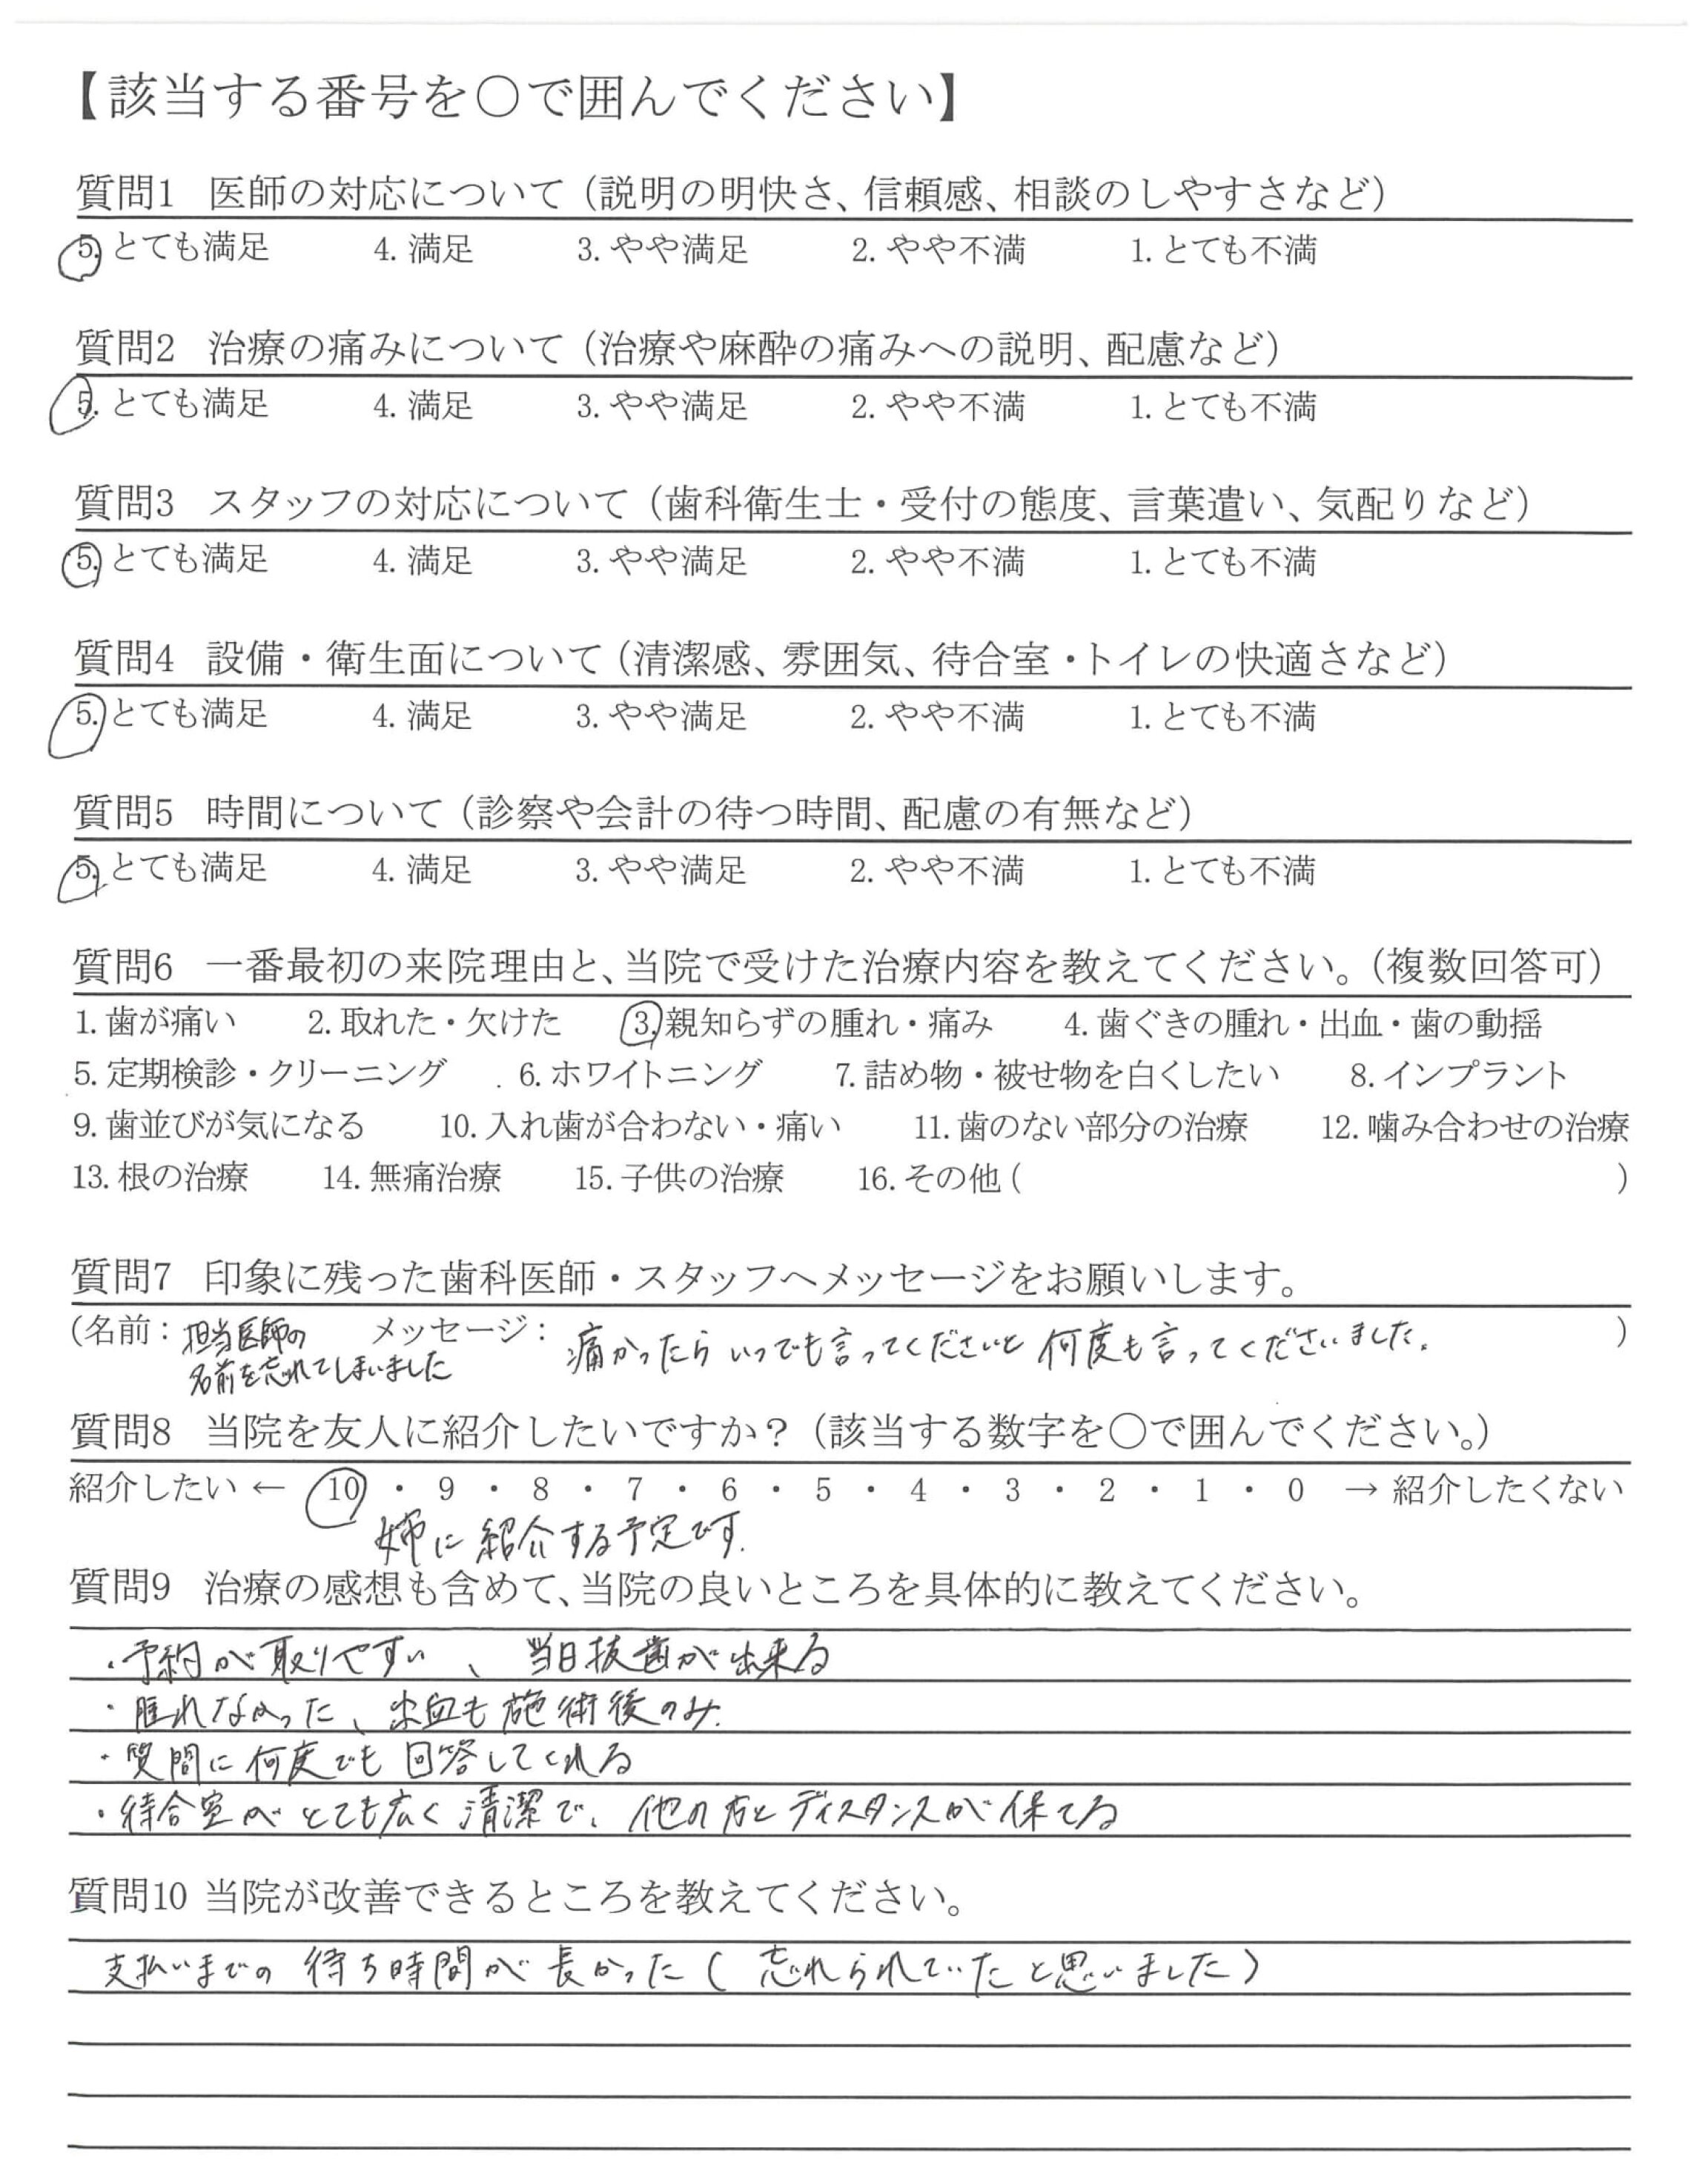 【該当する番号を○で囲んでください】
質問1 医師の対応について（説明の明快さ、信頼感、相談のしやすさなど）
5. とても満足 4. 満足 3. やや満足 2. やや不満 1. とても不満
質問2 治療の痛みについて（治療や麻酔の痛みへの説明、配慮など）
5. とても満足 4. 満足 3. やや満足 2. やや不満 1. とても不満
質問3 スタッフの対応について（歯科衛生士・受付の態度、言葉遣い、気配りなど）
5. とても満足 4. 満足 3. やや満足 2. やや不満 1. とても不満
質問4 設備・衛生面について（清潔感、雰囲気、待合室・トイレの快適さなど）
5. とても満足 4. 満足 3. やや満足 2. やや不満 1. とても不満
質問5 時間について（診察や会計の待つ時間、配慮の有無など）
5. とても満足 4. 満足 3. やや満足 2. やや不満 1. とても不満
質問6 一番最初の来院理由と、当院で受けた治療内容を教えてください。（複数回答可）
1. 歯が痛い 2. 取れた・欠けた 3. 親知らずの腫れ・痛み 4. 歯ぐきの腫れ・出血・歯の動揺
5. 定期検診・クリーニング 6. ホワイトニング 7. 詰め物・被せ物を白くしたい 8. インプラント
9. 歯並びが気になる 10. 入れ歯が合わない・痛い 11. 歯のない部分の治療 12. 噛み合わせの治療
13. 根の治療 14. 無痛治療 15. 子供の治療 16. その他（ ）
質問7 印象に残った歯科医師・スタッフへメッセージをお願いします。
（名前：担当医師の メッセージ：痛かったらいつでも言ってくださいと何度も言ってくださいました。 ）
名前を忘れてしまいました
質問8 当院を友人に紹介したいですか？（該当する数字を○で囲んでください。）
紹介したい ← 10 ・ 9 ・ 8 ・ 7 ・ 6 ・ 5 ・ 4 ・ 3 ・ 2 ・ 1 ・ 0 → 紹介したくない
姉に紹介する予定です.
質問9 治療の感想も含めて、当院の良いところを具体的に教えてください。
・予約が取りやすい、当日抜歯が出来る
・腫れなかった、出血も施術後のみ.
・質問に何度でも回答してくれる
・待合室がとても広く清潔で、他の方とディスタンスが保てる
質問10 当院が改善できるところを教えてください。
支払いまでの待ち時間が長かった（忘れられていたと思いました）